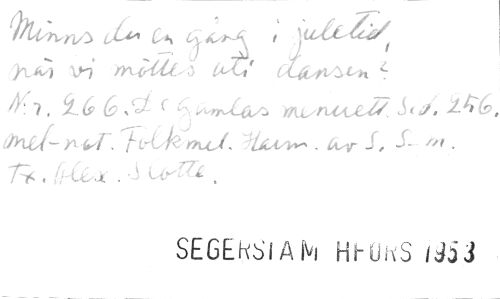 Minns du en gång i juletid,
när vi möttes uti dansen?
Nr. 266. De gamlas menuett. Sid. 256.
mel-not. Folkmel. Harm. av S. S-m.
Tx. Alex. Slotte.
SEGERSTAM HFORS 1953